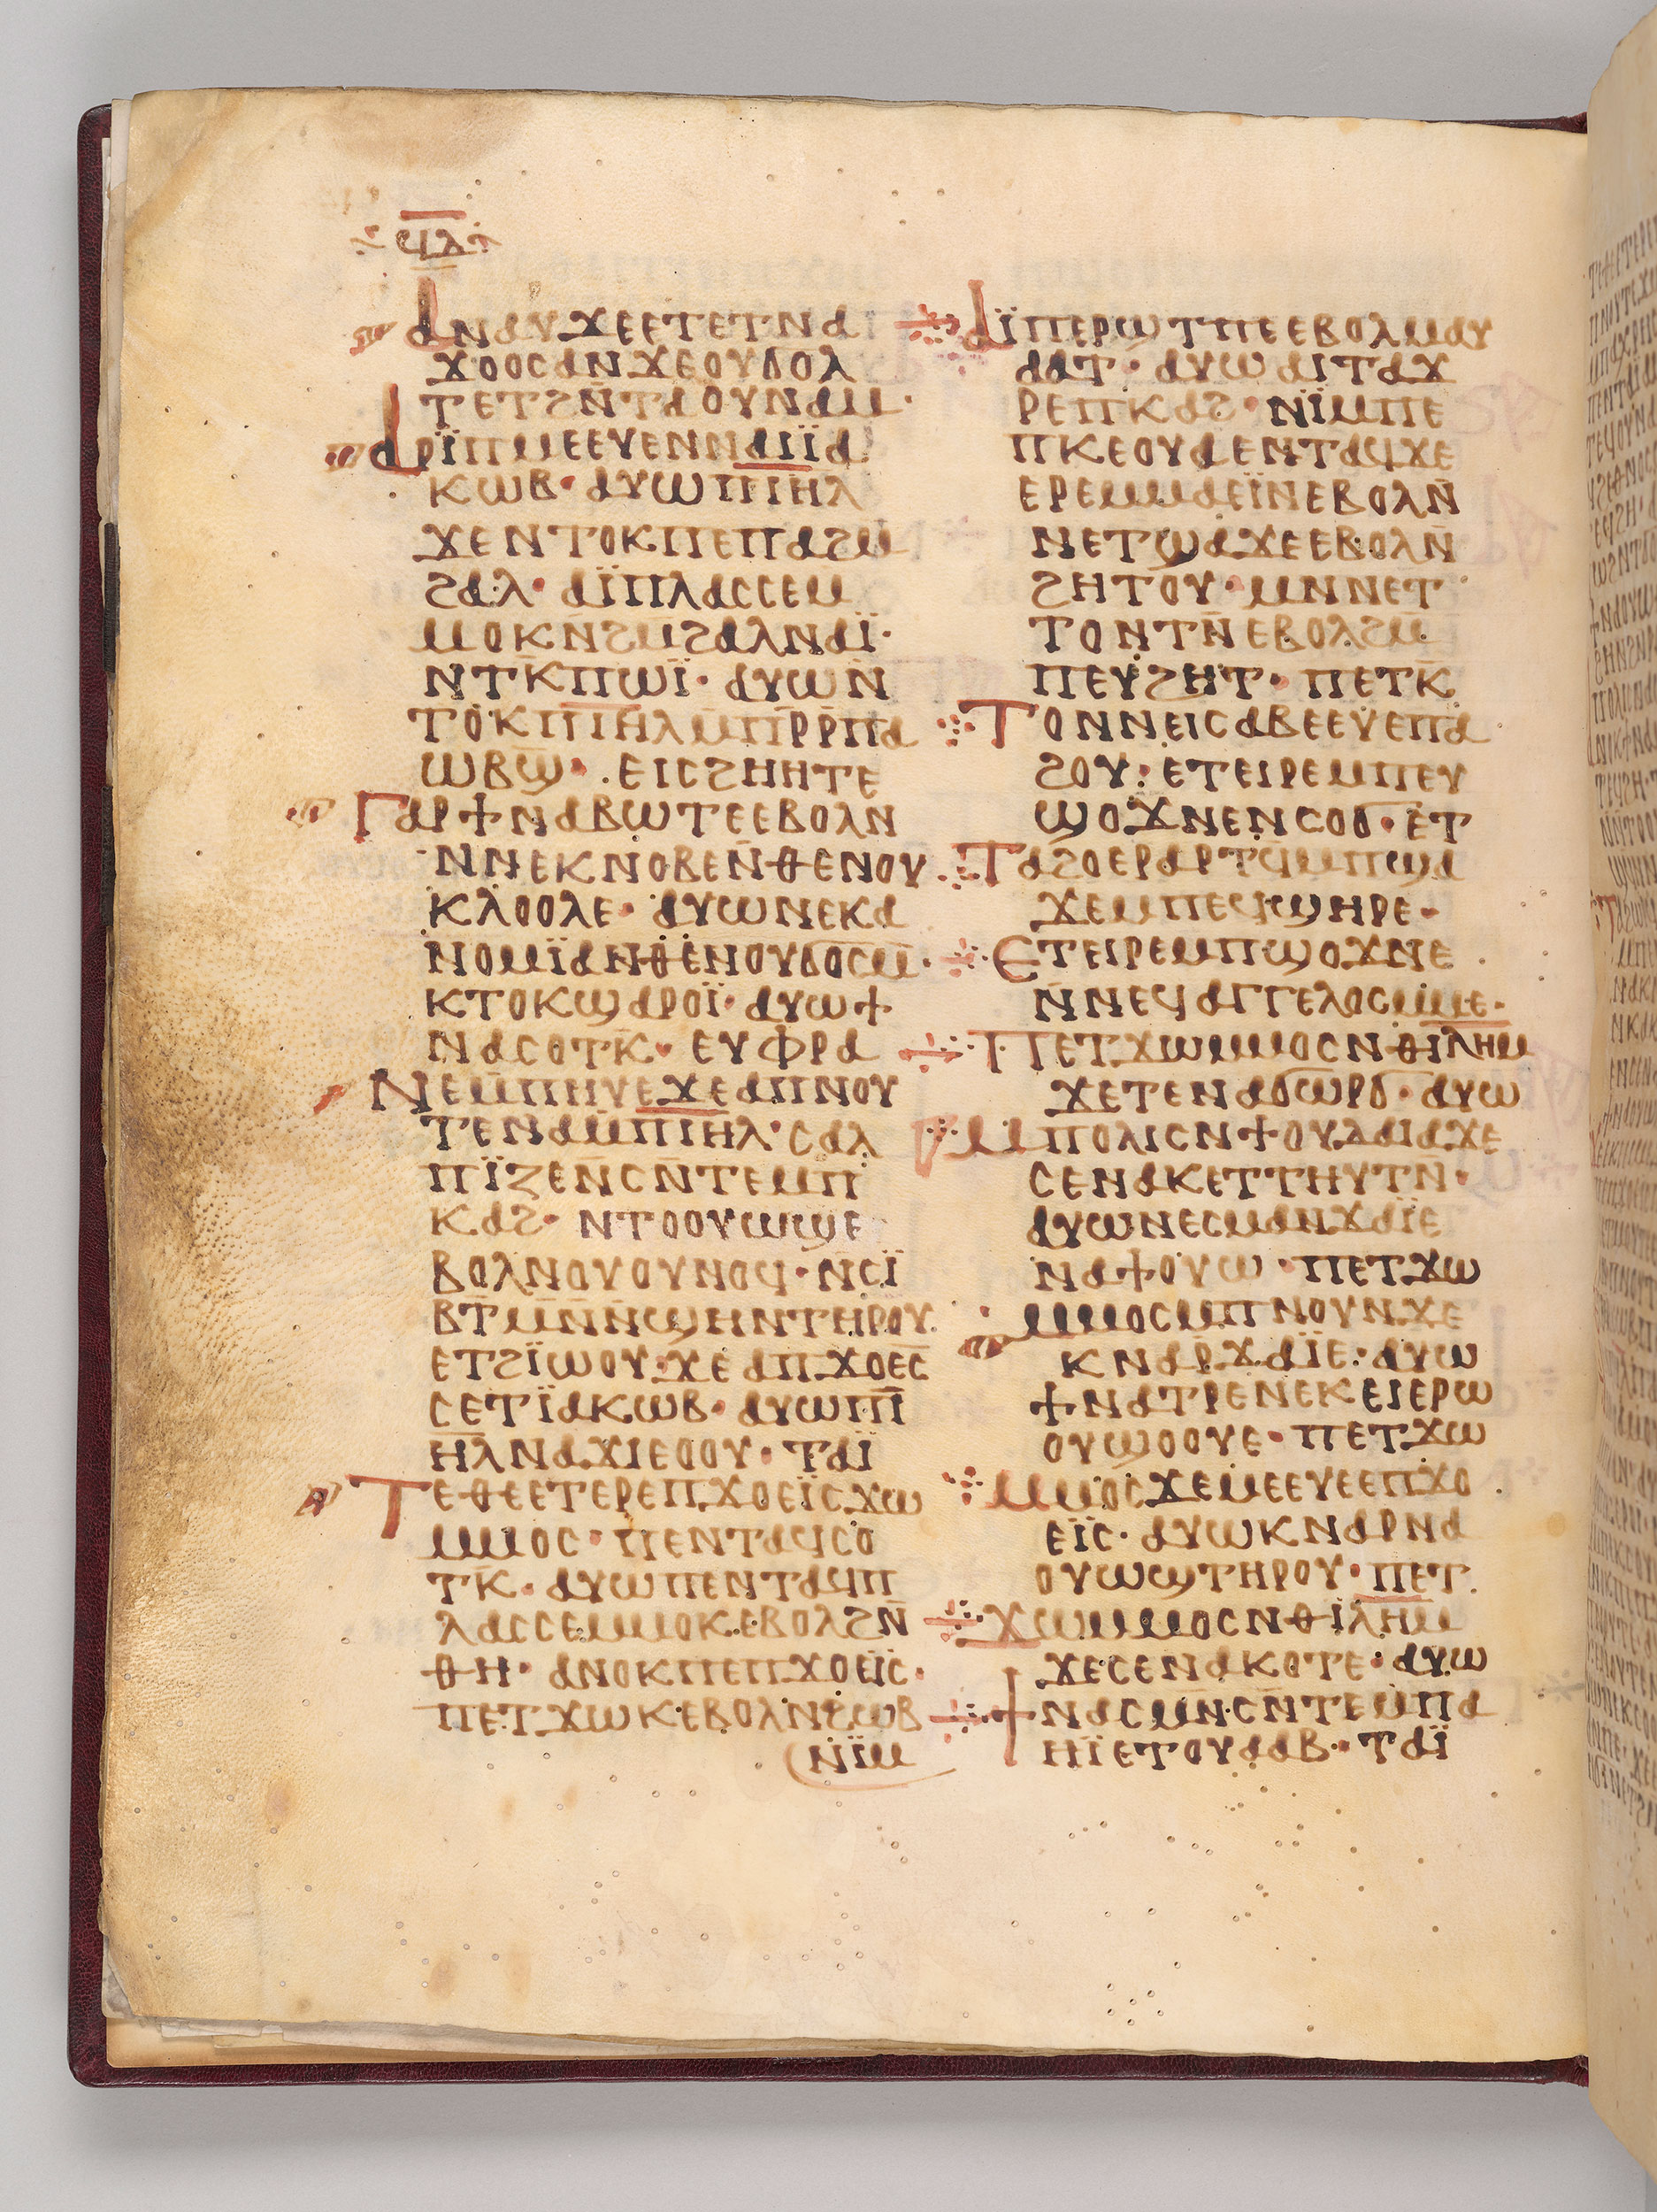 ϥⲗ
ⲁⲛⲁⲩ ϫⲉⲉⲧⲉⲧⲛⲁ
ϫⲟⲟⲥⲁⲛϫⲉⲟⲩϭⲟⲗ
ⲧⲉⲧϩⲛ̄ⲧⲁⲟⲩⲛⲁⲙ·
ⲁⲣⲓ̈ⲡⲙⲉⲉⲩⲉⲛⲛⲁⲓ̈ⲓ̈ⲁ
ⲕⲱⲃ· ⲁⲩⲱⲡⲓⲏⲗ
ϫⲉⲛⲧⲟⲕⲡⲉⲡⲁϩⲙ
ϩⲁⲗ· ⲁⲓ̈ⲡⲗⲁⲥⲥⲉⲙ
ⲙⲟⲕⲛϩⲙϩⲁⲗⲛⲁⲓ̈·
ⲛⲧⲕ̄ⲡⲱⲓ̈· ⲁⲩⲱⲛ̄
ⲧⲟⲕⲡⲓⲏⲗⲙ̄ⲡⲣ̄ⲣ̄ⲡⲁ
ⲱⲃϣ̄· ⲉⲓⲥϩⲏⲏⲧⲉ
ⲅⲁⲣϯⲛⲁⲃⲱⲧⲉⲉⲃⲟⲗⲛ
ⲛⲛⲉⲕⲛⲟⲃⲉⲛ̄ⲑⲉⲛⲟⲩ
ⲕⲗⲟⲟⲗⲉ· ⲁⲩⲱⲛⲉⲕⲁ
ⲛⲟⲙⲓ̈ⲁⲛⲑⲉⲛⲟⲩϭⲟⲥⲙ̄·
ⲕⲧⲟⲕϣⲁⲣⲟⲓ̈· ⲁⲩⲱϯ
ⲛⲁⲥⲟⲧⲕ̄· ⲉⲩⲫⲣⲁ
ⲛⲉⲙ̄ⲡⲏⲩⲉϫⲉⲁⲡⲛⲟⲩ
ⲧⲉⲛⲁⲙ̄ⲡⲓⲏⲗ· ⲥⲁⲗ
ⲡⲓ̈ⲍⲉⲛ̄ⲥⲛ̄ⲧⲉⲙⲡ
ⲕⲁϩ· ⲛⲧⲟⲟⲩⲱϣⲉ
ⲃⲟⲗⲛⲟⲩⲟⲩⲛⲟϥ· ⲛ̄ⲥⲓ̈
ⲃⲧⲙⲛ̄ⲛ̄ϣⲏⲛⲧⲏⲣⲟⲩ
ⲉⲧϩⲓ̈ⲱⲟⲩ·ϫⲉⲁⲡϫⲟⲉⲥ
ⲥⲉⲧⲓ̈ⲁⲕⲱⲃ· ⲁⲩⲱⲡⲓ̄
ⲏ̄ⲗⲛⲁϫⲓⲉⲟⲟⲩ· ⲧⲁⲓ̈
ⲧⲉⲑⲉⲉⲧⲉⲣⲉⲡϫⲟⲉⲓ̈ⲥϫⲱ
ⲙⲙⲟⲥ· ⲡⲉⲛⲧⲁϥⲥⲟ
ⲧⲕ̄· ⲁⲩⲱⲡⲉⲛⲧⲁϥⲡ
ⲗⲁⲥⲥⲉⲙⲙⲟⲕⲉⲃⲟⲗϩⲛ̄
ⲑⲏ· ⲁⲛⲟⲕⲡⲉⲡϫⲟⲉⲓ̈ⲥ·
ⲡⲉⲧϫⲱⲕⲉⲃⲟⲗⲛϩⲱⲃ
ⲛⲓ̈ⲙ
ⲁⲓ̈ⲡⲉⲣϣⲧⲡⲉⲉⲃⲟⲗⲙⲁⲩ
ⲁⲁⲧ· ⲁⲩⲱⲁⲓⲧⲁϫ
ⲣⲉⲡⲕⲁϩ· ⲛⲓ̈ⲙⲡⲉ
ⲡⲕⲉⲟⲩⲁⲉⲛⲧⲁϥϫⲉ
ⲉⲣⲉⲙⲙⲁⲉⲓ̈ⲛⲉⲃⲟⲗⲛ̄
ⲛⲉⲧϣⲁϫⲉⲉⲃⲟⲗⲛ̄
ϩⲏⲧⲟⲩ· ⲙⲛⲛⲉⲧ
ⲧⲟⲛⲧⲛ̄ⲉⲃⲟⲗϩⲙ̄
ⲡⲉⲩϩⲏⲧ· ⲡⲉⲧⲕ̄
ⲧⲟⲛⲛⲉⲓⲥⲁⲃⲉⲉⲩⲉⲡⲁ
ϩⲟⲩ· ⲉⲧⲉⲓⲣⲉⲙⲡⲉⲩ
ϣⲟϫⲛⲉⲛⲥⲟϭ· ⲉⲧ
ⲧⲁϩⲟⲉⲣⲁⲣⲧϥ̄ⲙⲡϣⲁ
ϫⲉⲙⲡⲉϥϣⲏⲣⲉ·
ⲉⲧⲉⲓⲣⲉⲙⲡϣⲟϫⲛⲉ
ⲛ̄ⲛⲉϥⲁⲅⲅⲉⲗⲟⲥⲙⲙⲉ·
ⲡⲉⲧϫⲱⲙⲙⲟⲥⲛⲑⲓⲗⲏⲙ
ϫⲉⲧⲉⲛⲁϭⲱⲣϭ· ⲁⲩⲱ
ⲙⲡⲟⲗⲓⲥⲛϯⲟⲩⲇⲁⲓⲁϫⲉ
ⲥⲉⲛⲁⲕⲉⲧⲧⲏⲩⲧⲛ̄·
ⲁⲩⲱⲛⲉⲥⲙⲁⲛϫⲁⲓ̈ⲉ
ⲛⲁϯⲟⲩⲱ· ⲡⲉⲧϫⲱ
ⲙⲙⲟⲥⲙⲡⲛⲟⲩⲛϫⲉ
ⲕⲛⲁⲣ̄ϫⲁⲓ̈ⲉ· ⲁⲩⲱ
ϯⲛⲁⲧⲣⲉⲛⲉⲕⲉⲓⲉⲣⲱ
ⲟⲩϣⲟⲟⲩⲉ· ⲡⲉⲧϫⲱ
ⲙⲙⲟⲥϫⲉⲙⲉⲉⲩⲉⲉⲡϫⲟ
ⲉⲓ̈ⲥ· ⲁⲩⲱⲕⲛⲁⲣⲛⲁ
ⲟⲩⲱϣⲧⲏⲣⲟⲩ· ⲡⲉⲧ
ϫⲱⲙⲙⲟⲥⲛⲑⲓⲗⲏⲙ
ϫⲉⲥⲉⲛⲁⲕⲟⲧⲉ· ⲁⲩⲱ
ϯⲛⲁⲥⲙⲛⲥⲛ̄ⲧⲉⲙ̄ⲡⲁ
ⲏⲓ̈ⲉⲧⲟⲩⲁⲁⲃ· ⲧⲁⲓ̈